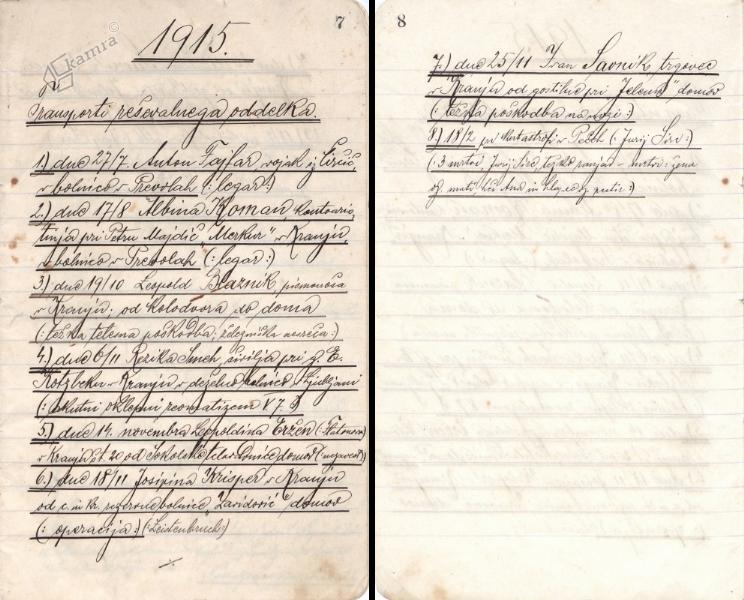 kamra
7
1915.
Transporti reševalnega oddelka.
1.) dne 27/7. Anton Tajfar vojak iz
v bolnico v Prevolah (: legar :)
2.) dne 17/8 Albina Koman kontoris
tinja pri Petru Majdič "Merkur" v Kranju,
v bolnico v Prevolah (: legar :)
3.) dne 19/10 Leopold Blaznik, pismonoša
v Kranju. od kolodvora do doma
(: težka telesna poškodba, železniška nesreča :)
4.) dne 6/11 Rezika Smeh, šivilja pri g.
v Kranju v deželno bolnico v Ljubljani
(: akutni oklepni reomatizem
5.) dne 14. novembra Leopoldina Eržen
v Kranju št. 20 od Sokolske domov
6.) dne 18/11 Josipina Krisper v Kranju
od c. in kr. rezervne bolnice "Zavidovič" domov
(: operacija :) (: Leistenbruch :)
8
7.) dne 25/11 Ivan Savnik, trgovec
v Kranju od gostilne pri "Jelenu" domov
(: težka poškodba na nogi :)
8.) 18/2 pri katastrofi v Pečeh (: Jurij
(: 3 mrtvi, Jurij težko ranjen - mrtvi: žena